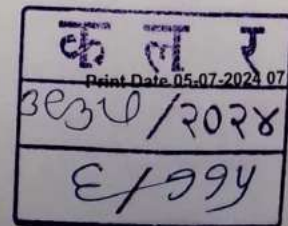 क ल र
Print Date 05-07-2024 07
/२०२४
६/११५